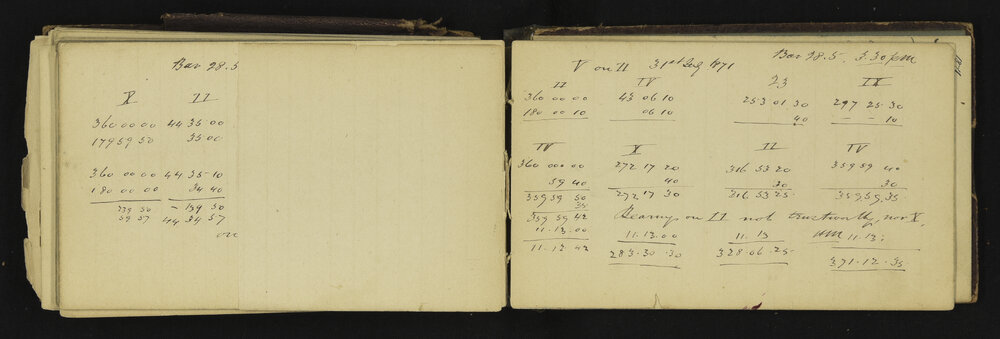 Bar 28.5
X II
360 00 00 44 35 00
179 59 50 35 00
360 00 00 44 35 10
180 00 00 34 40
119 50 - 119 50
59 57 44 34 57
Bar 28.5. 5.30 pm
V on II 31st July 1871
II IV 23 IX
360 00 00 43 06 10 253 01 30 297 25 30
180 00 10 06 10 40 - - 10
IV X II IV
360 00 00 272 17 20 316 53 20 359 59 40
59 40 40 30 30
359 59 50 272 17 30 316 53 25 359,59,35
35
359 59 42 Bearings on II not trustworthy, nor X
11.13.00 11.13.00 11.13 11.13.
11.12 42 283.30.30 328.06.25 371.12.35